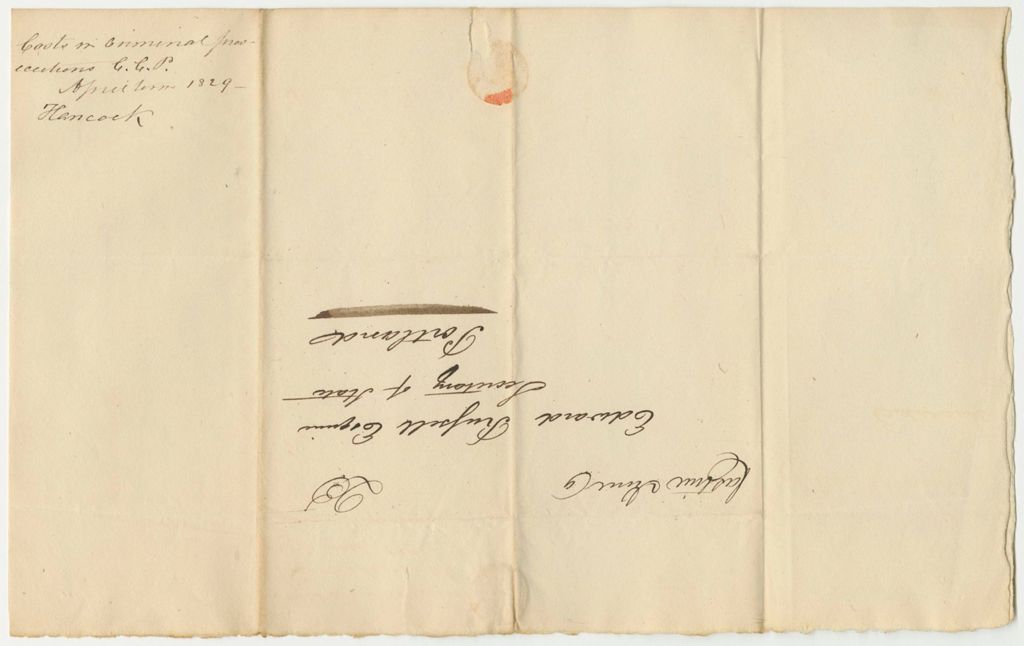 Costs in Criminal pros-
ecutions C.C.P.
April term 1829 -
Hancock
Edward Russell Esquire
Secretary of State
Portland